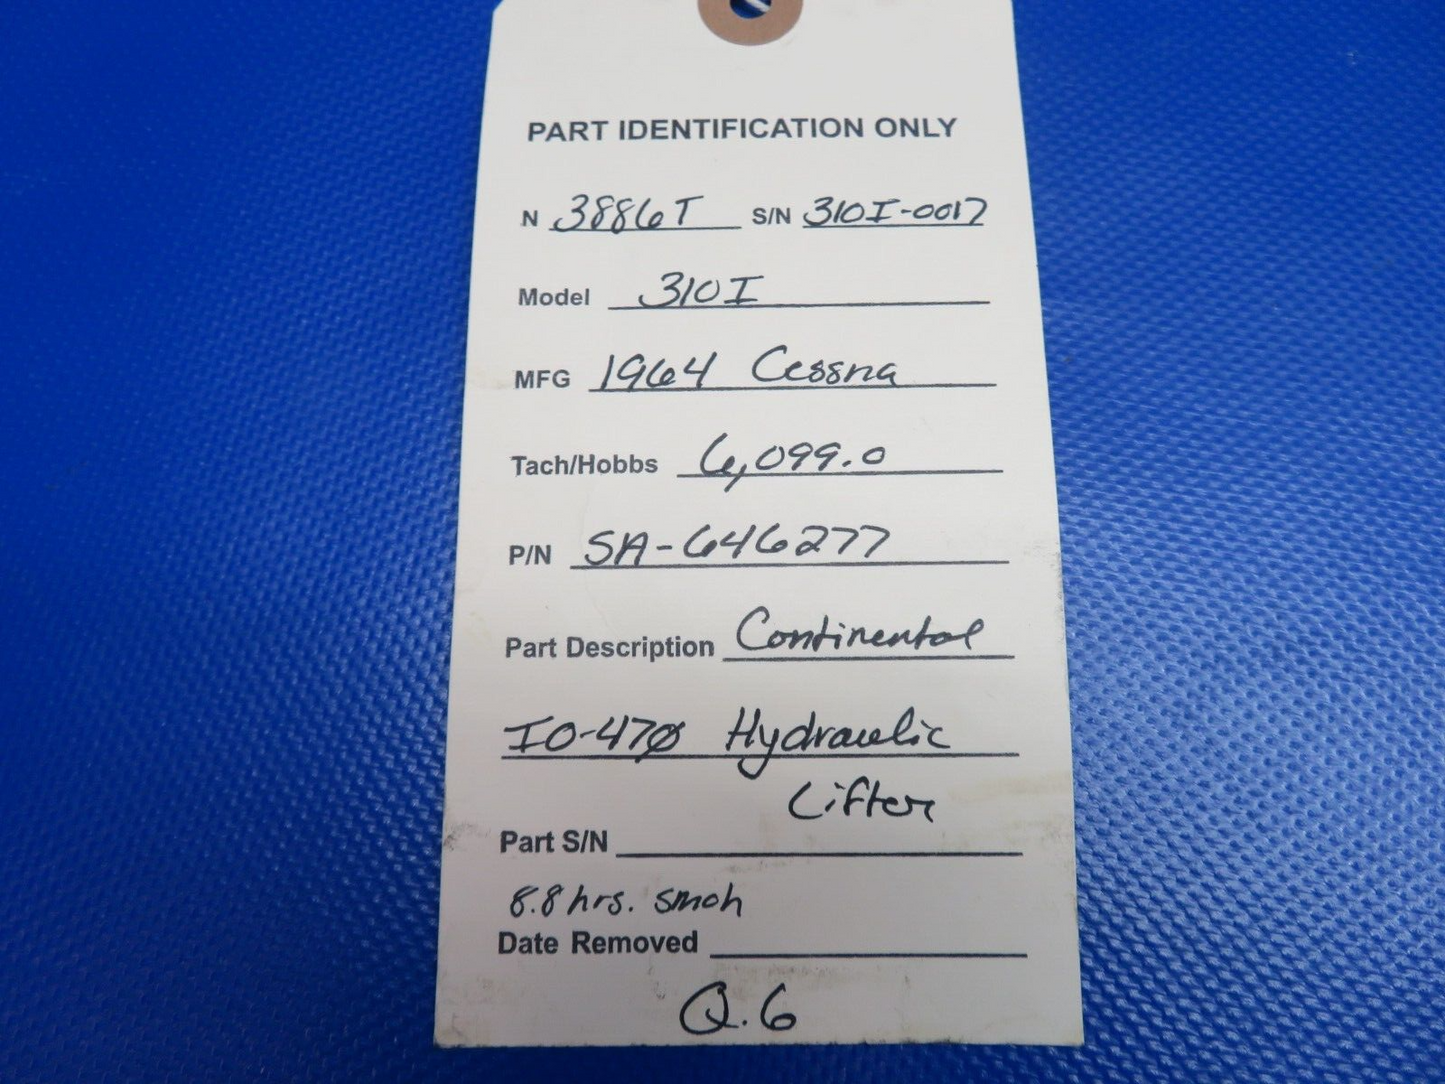 PART IDENTIFICATION ONLY
N 3886T S/N 310I-0017
Model 310I
MFG 1964 Cessna
Tach/Hobbs 6,099.0
P/N SA-646277
Part Description Continental
IO-470 Hydraulic
Lifter
Part S/N
8.8 hrs. smoh
Date Removed
Q.6